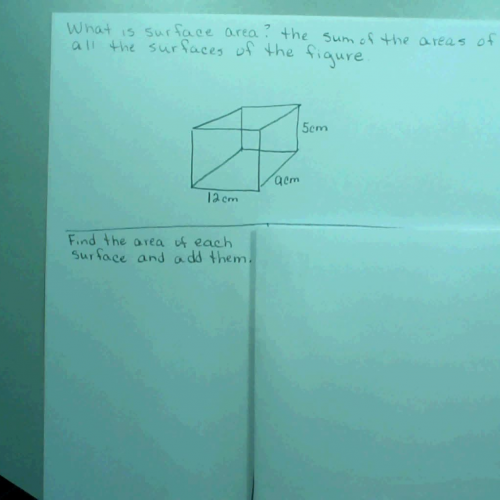 What is surface area? the sum of the areas of
all the surfaces of the figure.
5cm
9cm
12cm
Find the area of each
surface and add them.